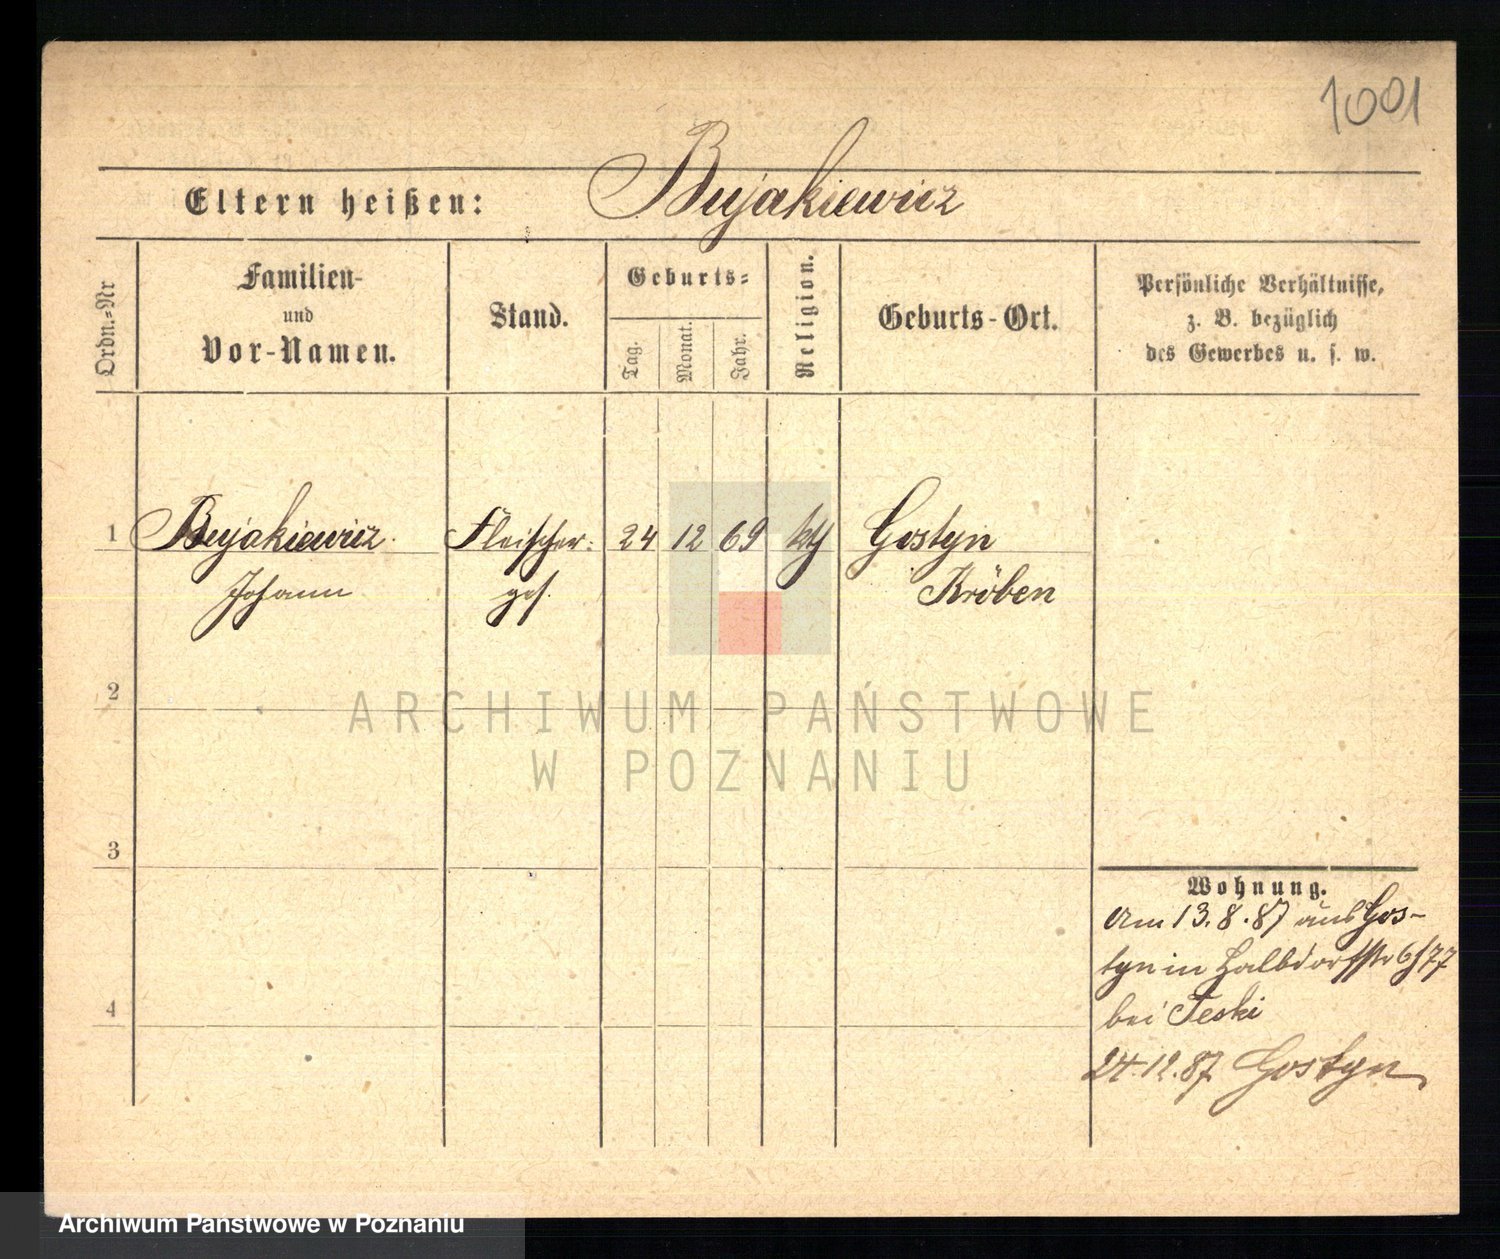 1001
Eltern heißen: Bujakiewicz
Ordn.=Nr
Familien-
und
Vor-Namen.
Stand.
Geburts=
Tag.
Monat.
Jahr.
Religion.
Geburts-Ort.
Persönliche Verhältnisse,
z. B. bezüglich
des Gewerbes u. s. w.
1 Bujakiewicz Fleischer= 24 12 69 kth Gostyn
Johann ges. Kröben
2
3
4
Wohnung.
Am 13.8.87 aus Gos-
tyn in Halbdorfstr 6/77
bei Teski
24.12.87 Gostyn
ARCHIWUM PAŃSTWOWE
W POZNANIU
Archiwum Państwowe w Poznaniu